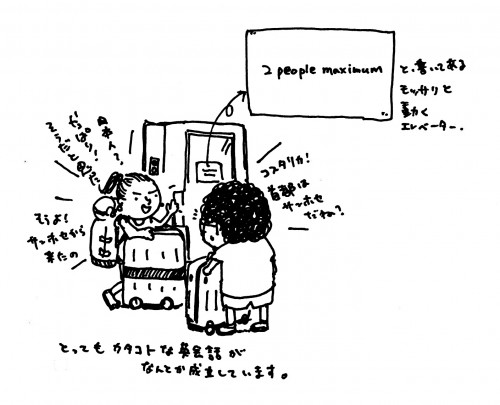 2 people maximum
と、書いてある
モッサリと
動く
エレベーター.
日本人?
やっぱり!
そうだと思って
コスタリカ!
首都は
サンホセ
だね?
そうよ!
サンホセから
来たの
とっても カタコトな 英会話が
なんとか成立しています。